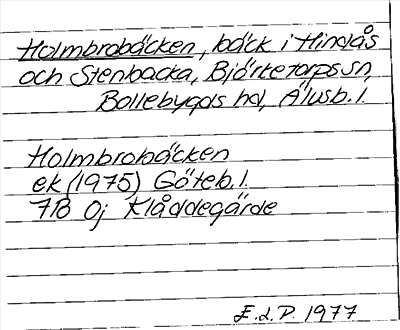 Holmbrobäcken, bäck i Hindås
och Stenbacka, Björketorps sn,
Bollebygds hd, Älvsb. l.
Holmbrobäcken
ek (1975) Göteb. l.
7B 0j Klåddegärde
E.d.P. 1977